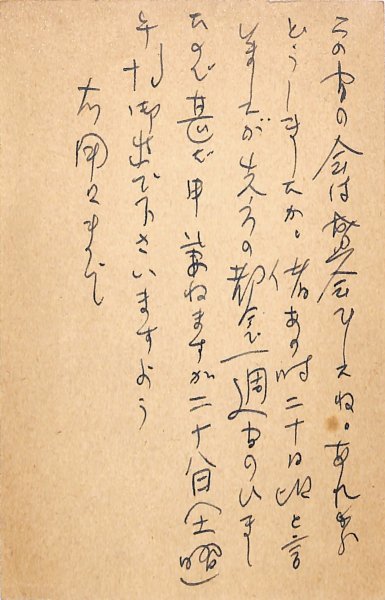 この間の会は盛会でしたね。あれから
どうしましたか。偖あの時二十日頃と言
いましたが先方の都合で一週間のびまし
たので甚だ申し兼ねますが二十八日(土曜)
午后御出で下さいますよう
右用々まで